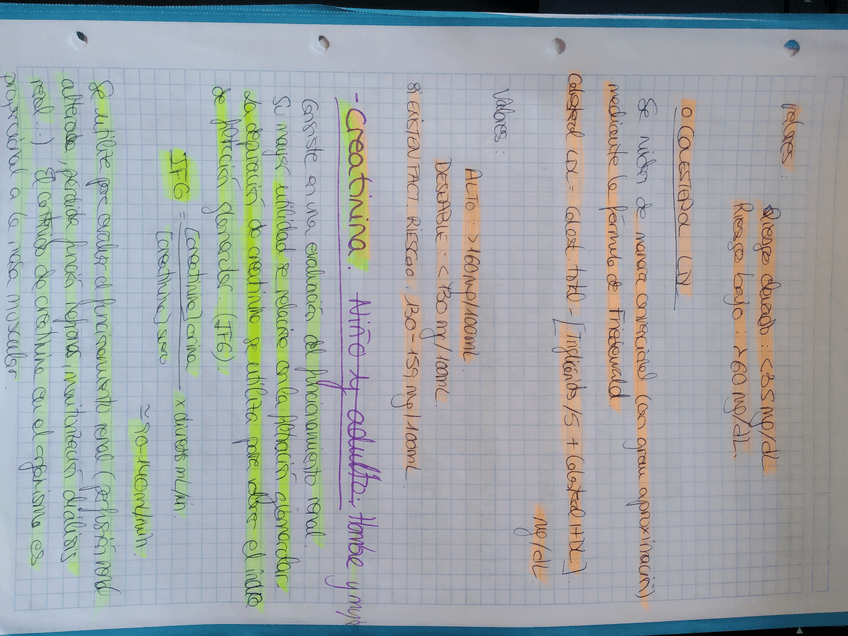 Valores:
Riesgo elevado: <35 mg/dL
Riesgo bajo: >60 mg/dL.
o COLESTEROL LDL
Se miden de manera convencional (con gran aproximación)
mediante la fórmula de Friedewald
Colesterol LDL = Colest total - [Triglicérido/5 + Colesterol HDL]
mg/dL
Valores:
ALTO: >160 mg/100mL
DESEABLE: <130 mg/100mL.
SI EXISTEN FACT. RIESGO: 130-159 mg/100mL.
- Creatinina. Niño y adulto; Hombre y mujer
Consiste en una evaluación del funcionamiento renal.
Su mayor utilidad se relaciona con la filtración glomerular
La depuración de creatinina se utiliza para valorar el índice
de filtración glomerular. (IFG).
IFG = [creatinina] orina / [creatinina] suero x diuresis mL/min.
≈ 90-140 mL/min.
Se utiliza para evaluar el funcionamiento renal (perfusión renal
alterada, pérdida función nefronas, monitorización diálisis
renal...) El contenido de creatinina en el organismo es
proporcional a la masa muscular.